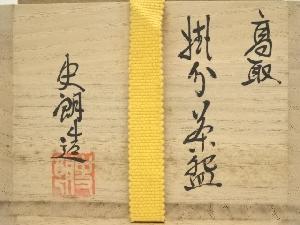 高取
掛分茶盌
史朗造